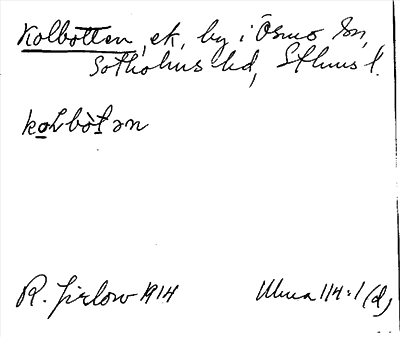 Kolbotten, ek, by i Ösmo sn,
Sotholms hd, Sthms l.
kolbòtən
R. Jirlow 1914 Ulma 114:1 (d)